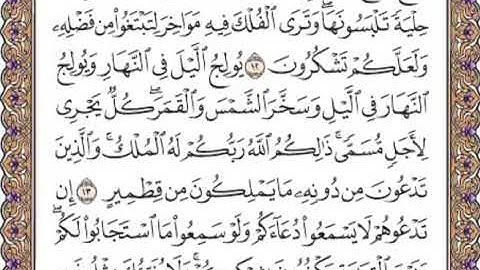 حِلْيَةً تَلْبَسُونَهَا ۖ وَتَرَى ٱلْفُلْكَ فِيهِ مَوَاخِرَ لِتَبْتَغُوا۟ مِن فَضْلِهِۦ
وَلَعَلَّكُمْ تَشْكُرُونَ ١٢ يُولِجُ ٱلَّيْلَ فِى ٱلنَّهَارِ وَيُولِجُ
ٱلنَّهَارَ فِى ٱلَّيْلِ وَسَخَّرَ ٱلشَّمْسَ وَٱلْقَمَرَ ۖ كُلٌّ يَجْرِى
لِأَجَلٍ مُّسَمًّى ۚ ذَٰلِكُمُ ٱللَّهُ رَبُّكُمْ لَهُ ٱلْمُلْكُ ۚ وَٱلَّذِينَ
تَدْعُونَ مِن دُونِهِۦ مَا يَمْلِكُونَ مِن قِطْمِيرٍ ١٣ إِن
تَدْعُوهُمْ لَا يَسْمَعُوا۟ دُعَآءَكُمْ وَلَوْ سَمِعُوا۟ مَا ٱسْتَجَابُوا۟ لَكُمْ ۖ